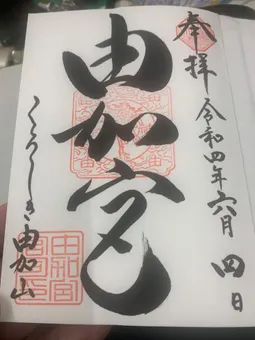 奉拝
令和四年六月四日
由加宮
くらしき由加山
由加宮